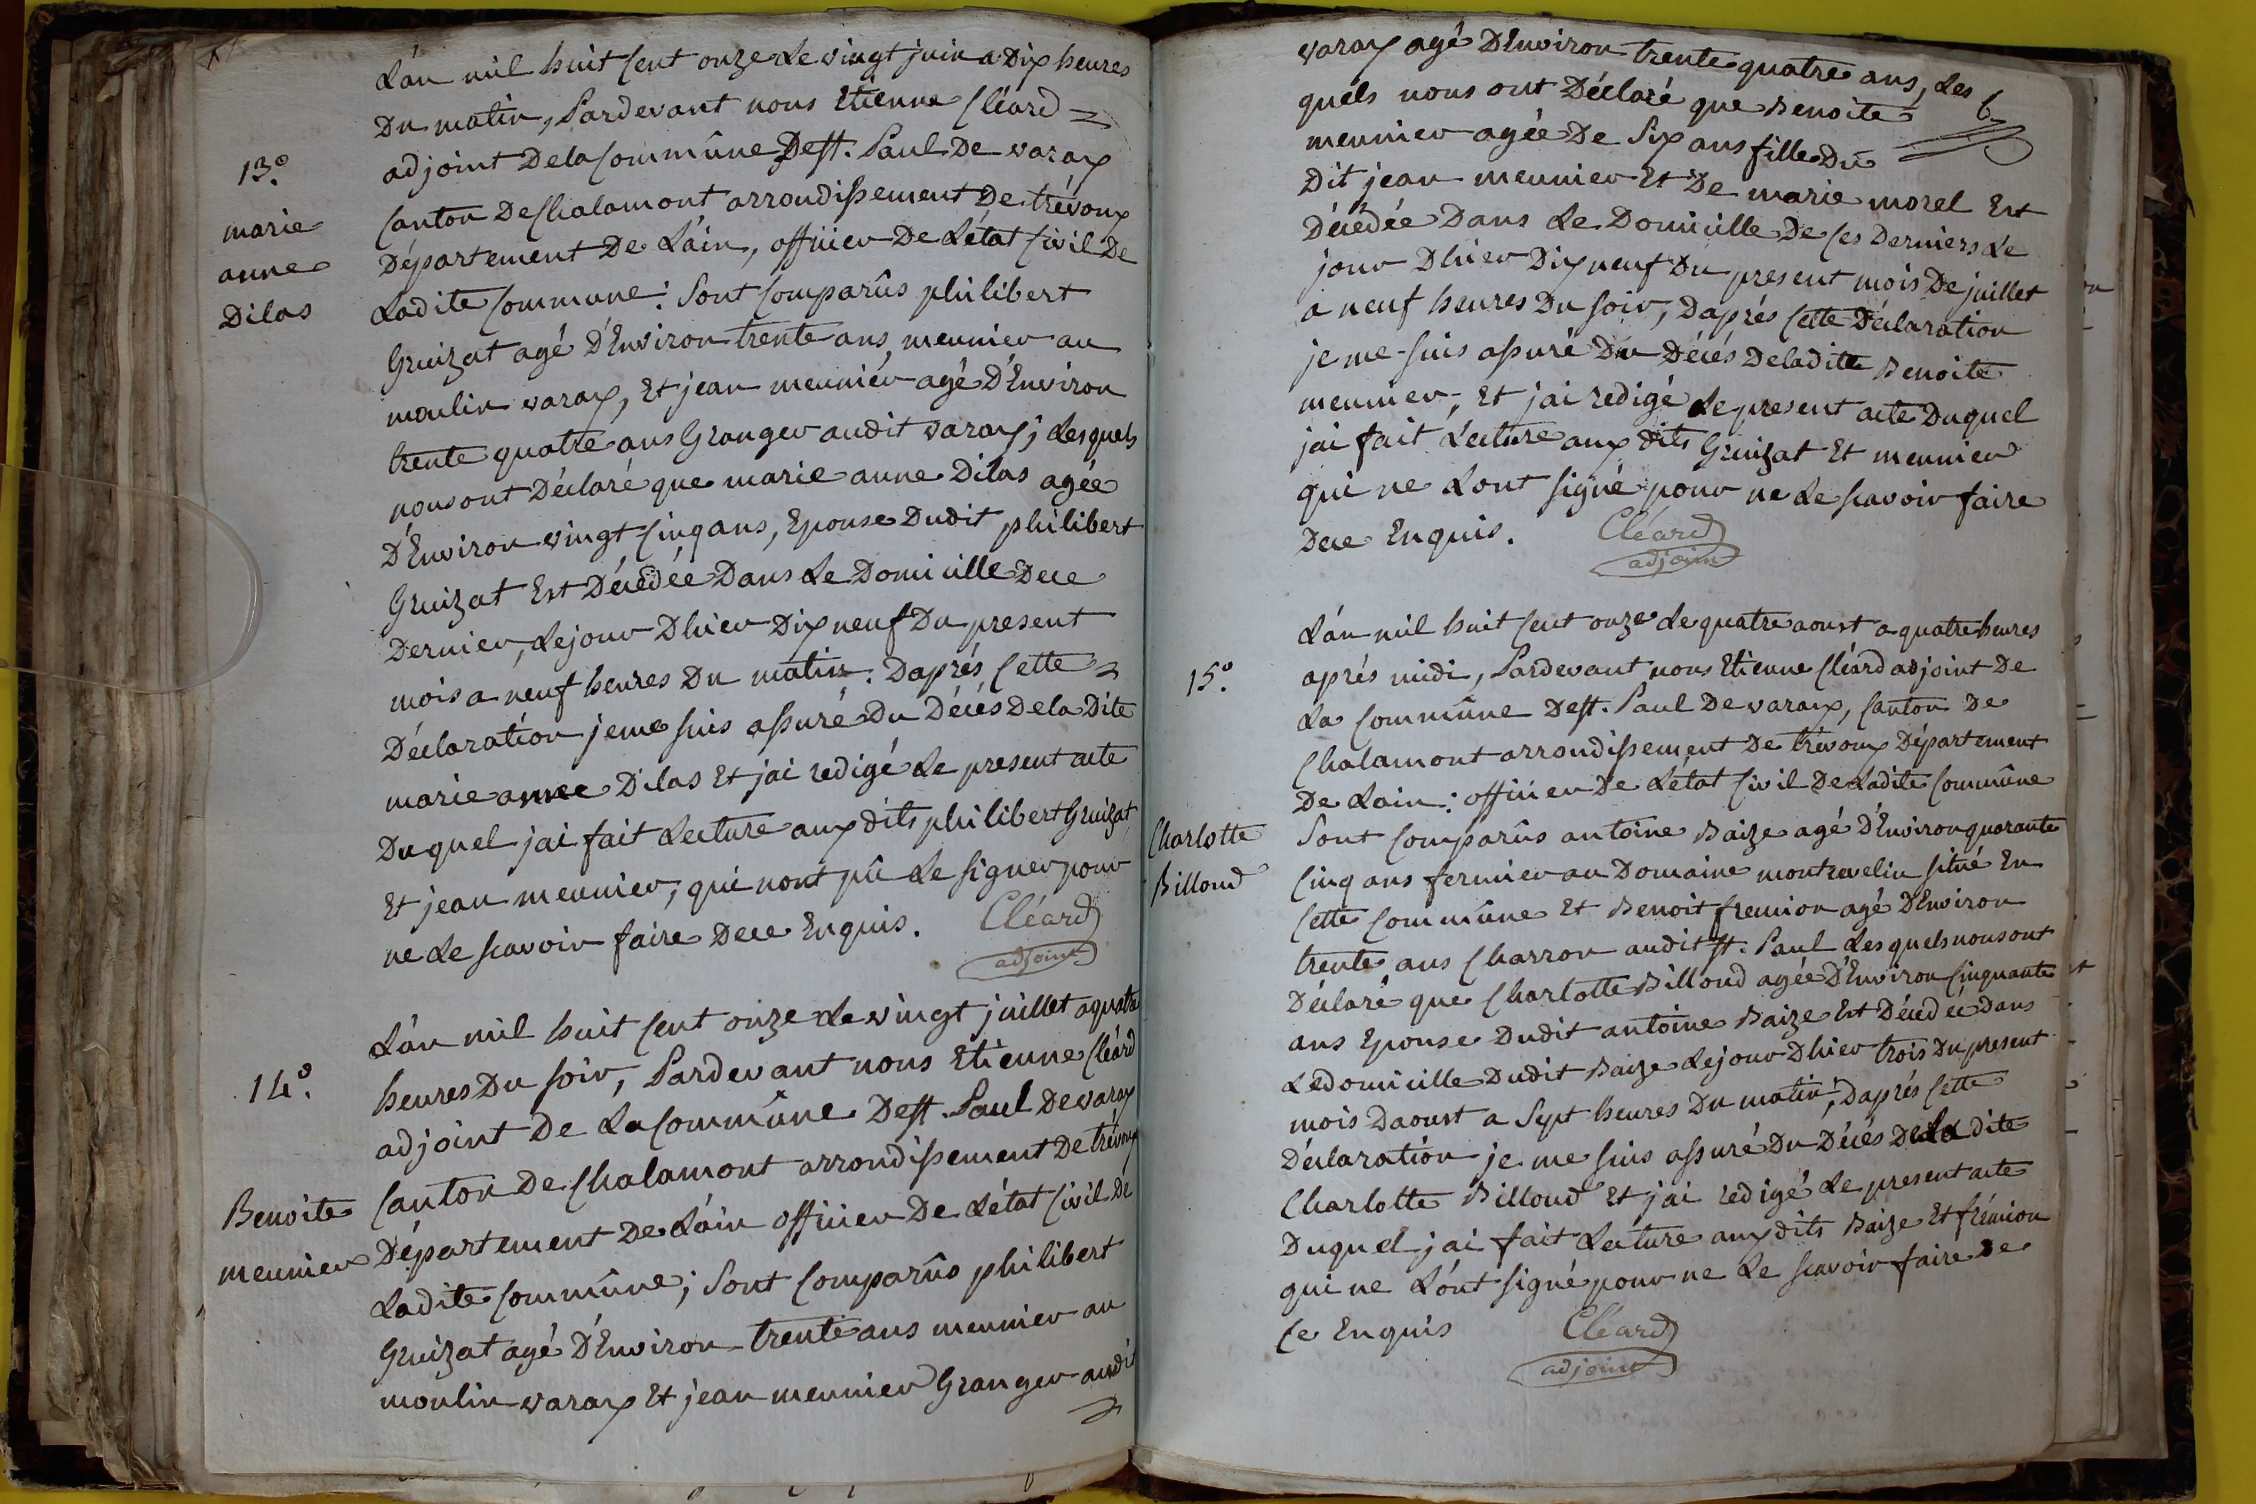 L'án mil huit cent onze Le vingt juin a Dix heures
Du matin, Pardevant nous Etienne Cléard
13.º
adjoint De la Commûne De st. Paul De varax
Canton De Chalamont arrondissement De trévoux
marie
anne
Dilas
Département De L'áin, officier De L'état Civil De
Ladite Commune: Sont Comparûs philibert
Gruizat agé D'Environ trente ans meunier au
moulin varax, Et jean meuniér agé D'Environ
trente quatre ans Granger audit varax; Lesquels
nous ont Déclaré que marie anne Dilas agée
D'Environ vingt Cinq ans, Epouse Dudit philibert
Gruizat Est Décédée Dans Le Domicille De ce
Dernier, Le jour D'hier Dix neuf Du present
mois a neuf heures Du matin. Daprés Cette
Déclaration je me suis assuré Du Décés De la Dite
marie annee Dilas Et j'ai redigé Le present acte
Du quel j'ai fait Lecture aux dits philibert Gruizat
Et jean meunier, qui n'ont pû Le signer pour
ne Le scavoir faire De ce Enquis. Cléard
adjoint
L'án mil huit Cent onze Le vingt juillet a quatre
14.º
heures Du soir, Pardevant nous Etienne Cléard
adjoint De La Commûne De st. Paul De varax
Canton De Chalamont arrondissement De trévoux
Benoite
meunier
Département De L'áin officier De L'état Civil De
Ladite Commûne; Sont Comparûs philibert
Gruizat agé D'Environ trente ans meunier au
moulin varax Et jean meunier Granger audit
varax agé D'Environ trente quatre ans, Les
quels nous ont Déclaré que Benoite
meunier agée De Six ans fille Du
Dit jean meunier Et De marie morel Est
Décédée Dans Le Domicille De Ces Derniers Le
jour D'hier Dix neuf Du present mois De juillet
a neuf heures Du soir, Daprés Cette Déclaration
je me suis assuré Du Décés De ladite Benoite
meunier; Et j'ai redigé Le present acte Duquel
j'ai fait Lecture aux dits Gruizat Et meunier
qui ne L'ont signé pour ne Le scavoir faire
De ce Enquis. Cléard
adjoint
L'án mil huit Cent onze Le quatre aoust a quatre heures
15.º
aprés midi, Pardevant nous Etienne Cléard adjoint De
La Commûne De st. Paul De varax, Canton De
Chalamont arrondissement De trévoux Département
De L'ain: officier De L'état Civil De Ladite Commûne
Charlotte
Billoud
Sont Comparûs antoine Baize agé D'Environ quarante
Cinq ans fermier au Domaine montravelin situé En
Cette Commûne Et Benoit fremion agé D'Environ
trente ans Charron audit st. Paul Les quels nous ont
Déclaré que Charlotte Billoud agée D'Environ Cinquante
ans Epouse Dudit antoine Baize Est Décédée Dans
Le domicille Dudit Baize Le jour D'hier trois Du present
mois D'aoust a Sept heures Du matin; Daprés Cette
Déclaration je me suis assuré Du Décés De La dite
Charlotte Billoud Et j'ai redigé Le present acte
Duquel j'ai fait Lecture aux dits Baize Et frémion
qui ne L'ónt signé pour ne Le scavoir faire De
Ce Enquis Cléard
adjoint